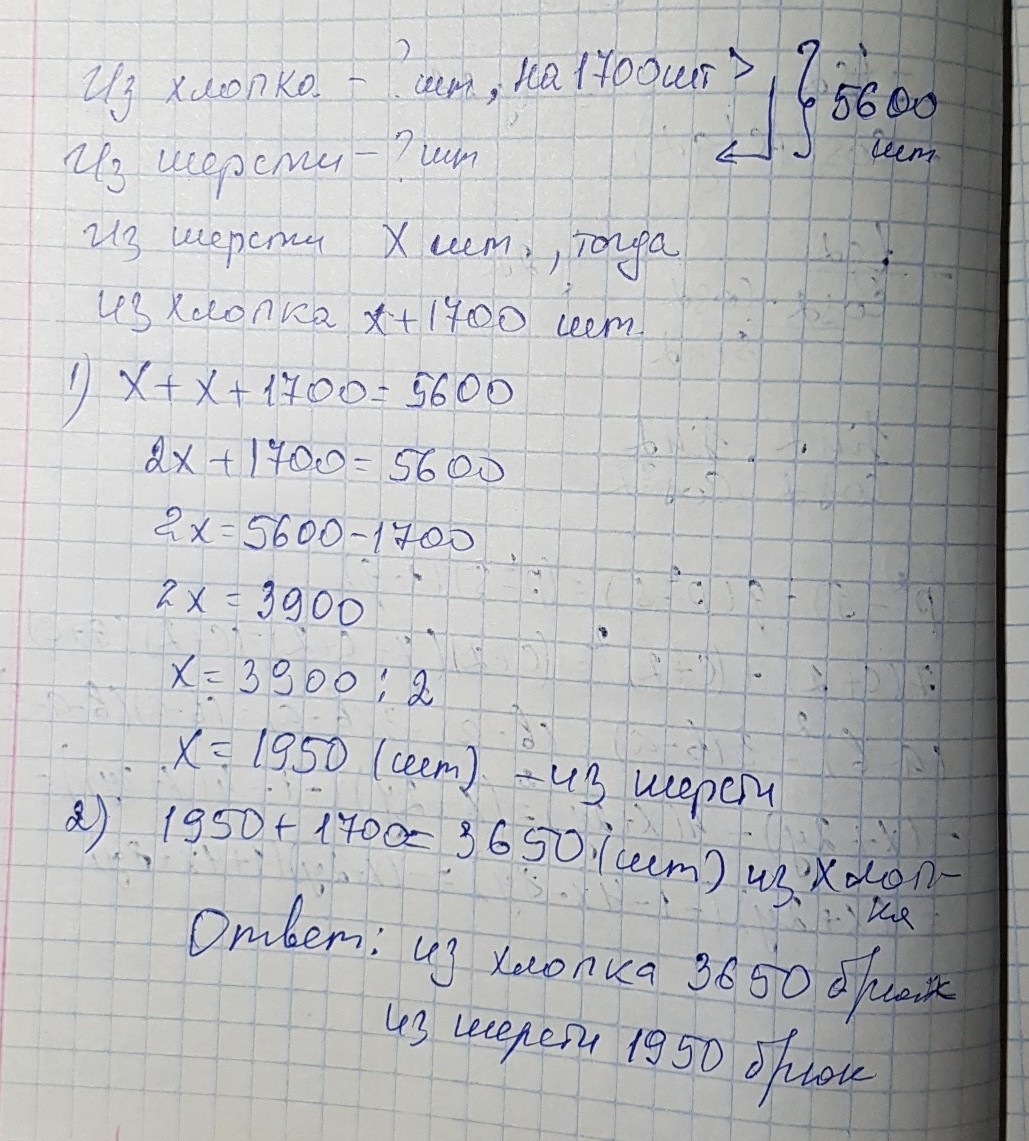 Из хлопка - ? шт, на 1700 шт > } 5600
Из шерсти - ? шт шт
Из шерсти x шт., тогда
из хлопка x+1700 шт
1) x+x+1700=5600
2x+1700=5600
2x=5600-1700
2x=3900
x=3900:2
x=1950 (шт) - из шерсти
2) 1950+1700=3650 (шт) из хлоп-
ка
Ответ: из хлопка 3650 брюк
из шерсти 1950 брюк